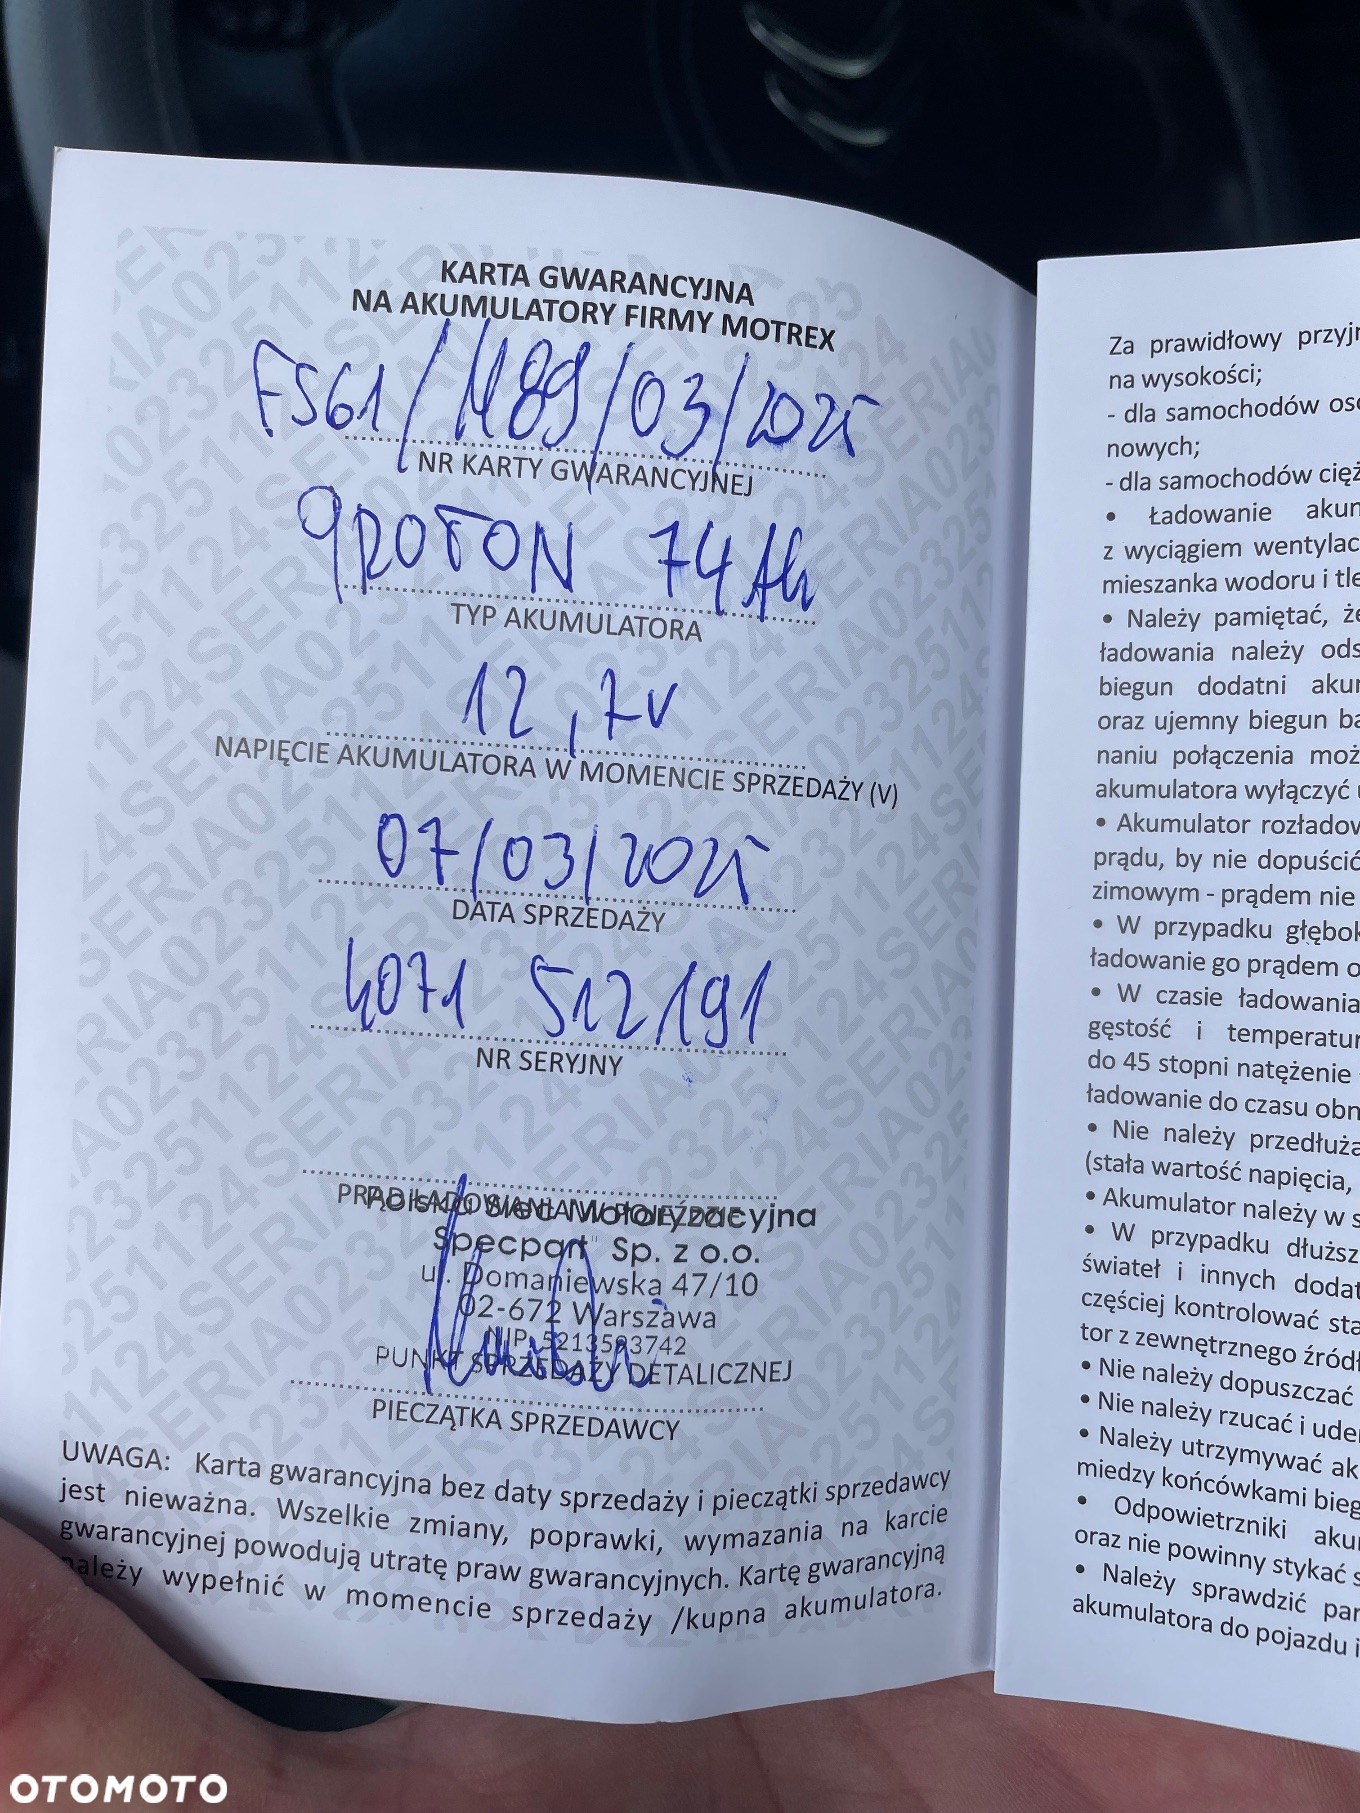 KARTA GWARANCYJNA
NA AKUMULATORY FIRMY MOTREX
FS61/1189/03/2025
NR KARTY GWARANCYJNEJ
GROTON 74Ah
TYP AKUMULATORA
12,7V
NAPIĘCIE AKUMULATORA W MOMENCIE SPRZEDAŻY (V)
07/03/2025
DATA SPRZEDAŻY
4071 512191
NR SERYJNY
PRĄD ŁADOWANIA W POJEŹDZIE
Polska Sieć Motoryzacyjna
Specpart" Sp. z o.o.
ul. Domaniewska 47/10
02-672 Warszawa
NIP: 5213593742
PUNKT SPRZEDAŻY DETALICZNEJ
PIECZĄTKA SPRZEDAWCY
UWAGA: Karta gwarancyjna bez daty sprzedaży i pieczątki sprzedawcy
jest nieważna. Wszelkie zmiany, poprawki, wymazania na karcie
gwarancyjnej powodują utratę praw gwarancyjnych. Kartę gwarancyjną
należy wypełnić w momencie sprzedaży /kupna akumulatora.
Za prawidłowy przyj
na wysokości;
- dla samochodów oso
nowych;
- dla samochodów cięż
• Ładowanie akum
z wyciągiem wentylac
mieszanka wodoru i tle
• Należy pamiętać, że
ładowania należy ods
biegun dodatni akum
oraz ujemny biegun ba
naniu połączenia moż
akumulatora wyłączyć
• Akumulator rozładow
prądu, by nie dopuścić
zimowym - prądem nie
• W przypadku głębok
ładowanie go prądem o
• W czasie ładowania
gęstość i temperatur
do 45 stopni natężenie
ładowanie do czasu obn
• Nie należy przedłuża
(stała wartość napięcia,
• Akumulator należy w s
• W przypadku dłuższ
świateł i innych dodat
częściej kontrolować sta
tor z zewnętrznego źródł
• Nie należy dopuszczać
• Nie należy rzucać i ude
• Należy utrzymywać ak
miedzy końcówkami bieg
• Odpowietrzniki aku
oraz nie powinny stykać s
• Należy sprawdzić par
akumulatora do pojazdu i
OTOMOTO